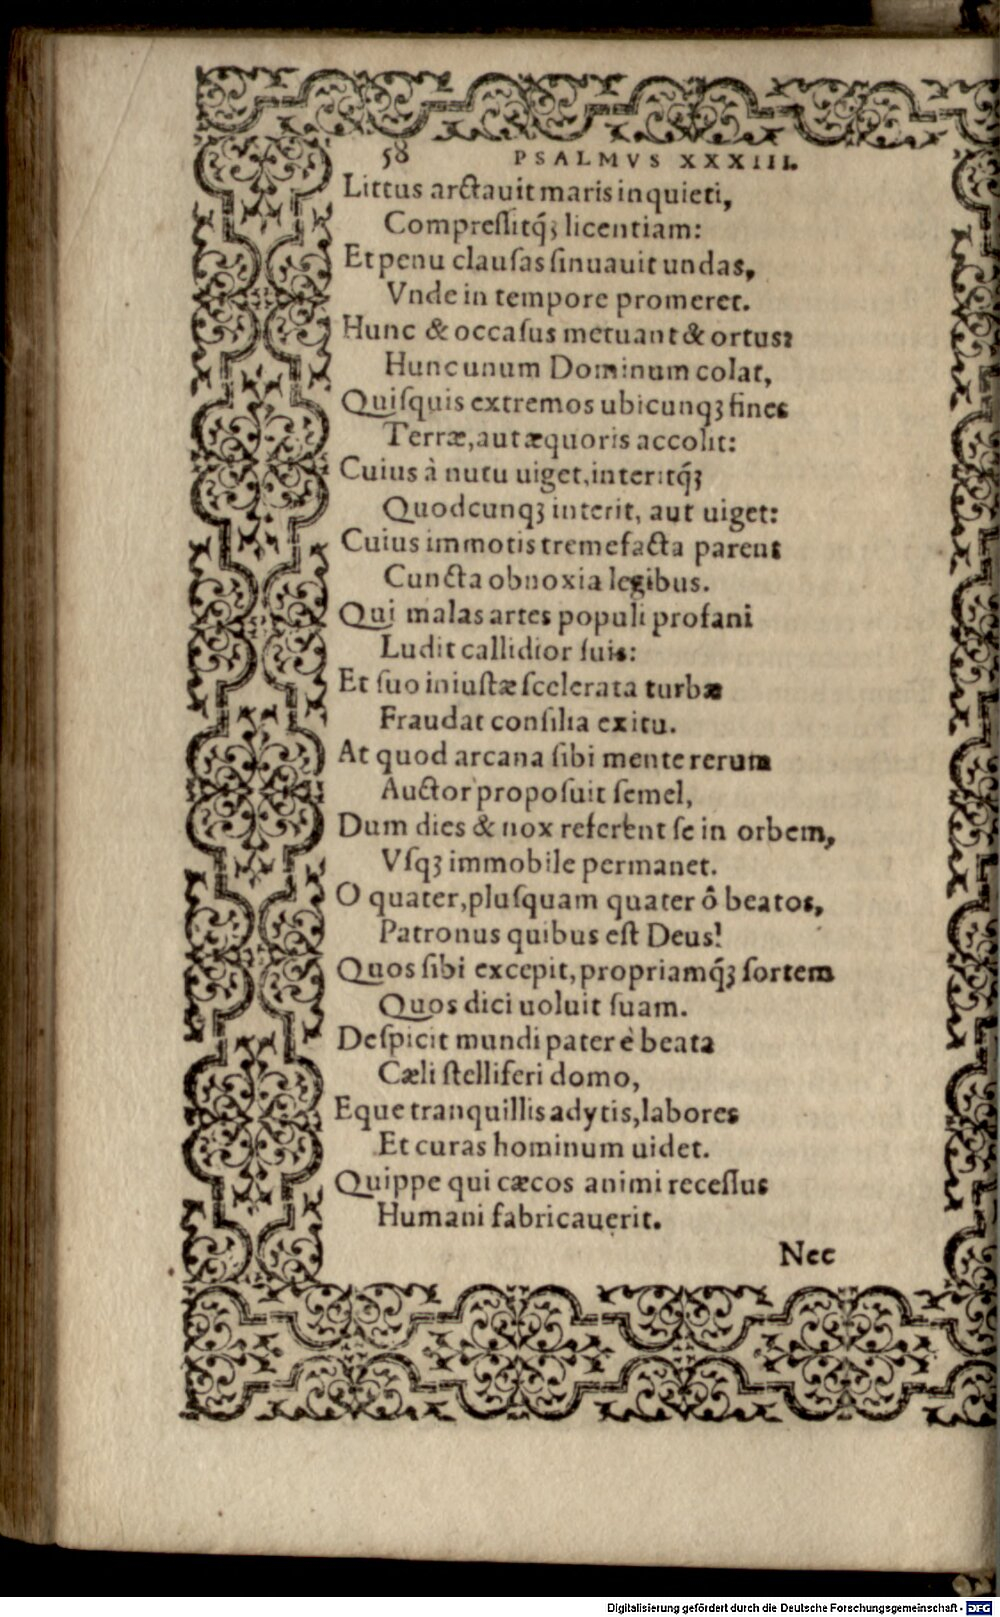 58 PSALMVS XXXIII.
Littus arctauit maris inquieti,
Compreſſitq́ꝫ licentiam:
Et penu clauſas ſinuauit undas,
Vnde in tempore promeret.
Hunc & occaſus metuant & ortus:
Hunc unum Dominum colat,
Quiſquis extremos ubicunqꝫ fines
Terræ, aut æquoris accolit:
Cuius à nutu uiget, interitq́ꝫ
Quodcunqꝫ interit, aut uiget:
Cuius immotis tremefacta parent
Cuncta obnoxia legibus.
Qui malas artes populi profani
Ludit callidior ſuis:
Et ſuo iniuſtæ ſcelerata turbæ
Fraudat conſilia exitu.
At quod arcana ſibi mente rerum
Auctor propoſuit ſemel,
Dum dies & nox referent ſe in orbem,
Vſqꝫ immobile permanet.
O quater, pluſquam quater ô beatos,
Patronus quibus eſt Deus!
Quos ſibi excepit, propriamq́ꝫ ſortem
Quos dici uoluit ſuam.
Deſpicit mundi pater è beata
Cæli ſtelliferi domo,
Eque tranquillis adytis, labores
Et curas hominum uidet.
Quippe qui cæcos animi receſſus
Humani fabricauerit.
Nec
Digitalisierung gefördert durch die Deutsche Forschungsgemeinschaft - DFG